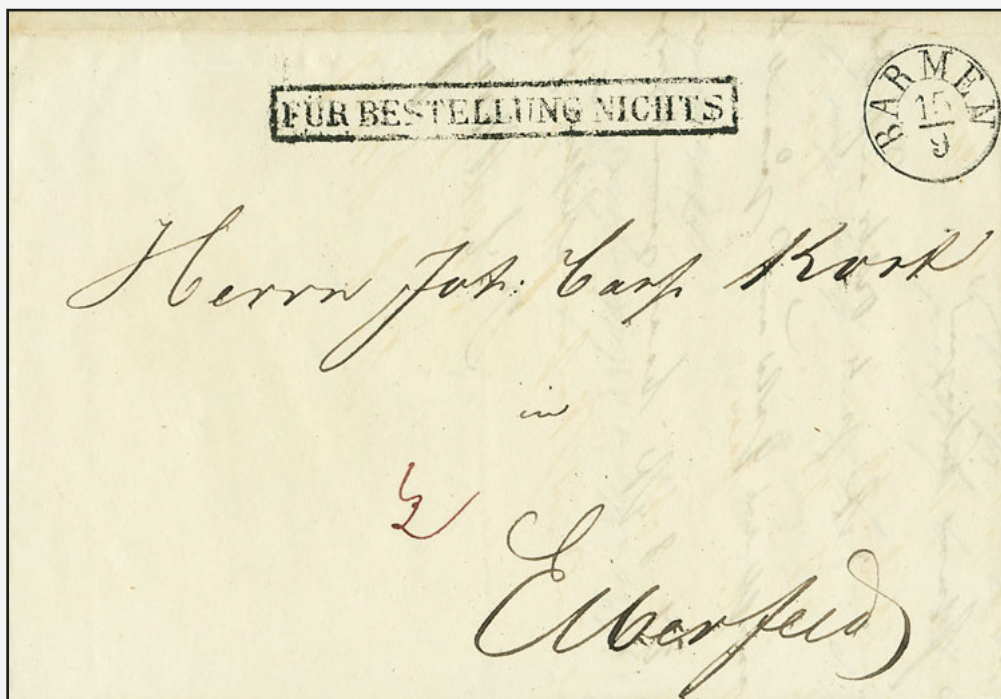 FÜR BESTELLUNG NICHTS
BARMEN
15
9
Herrn Joh: Casp Kork
in
Elberfeld